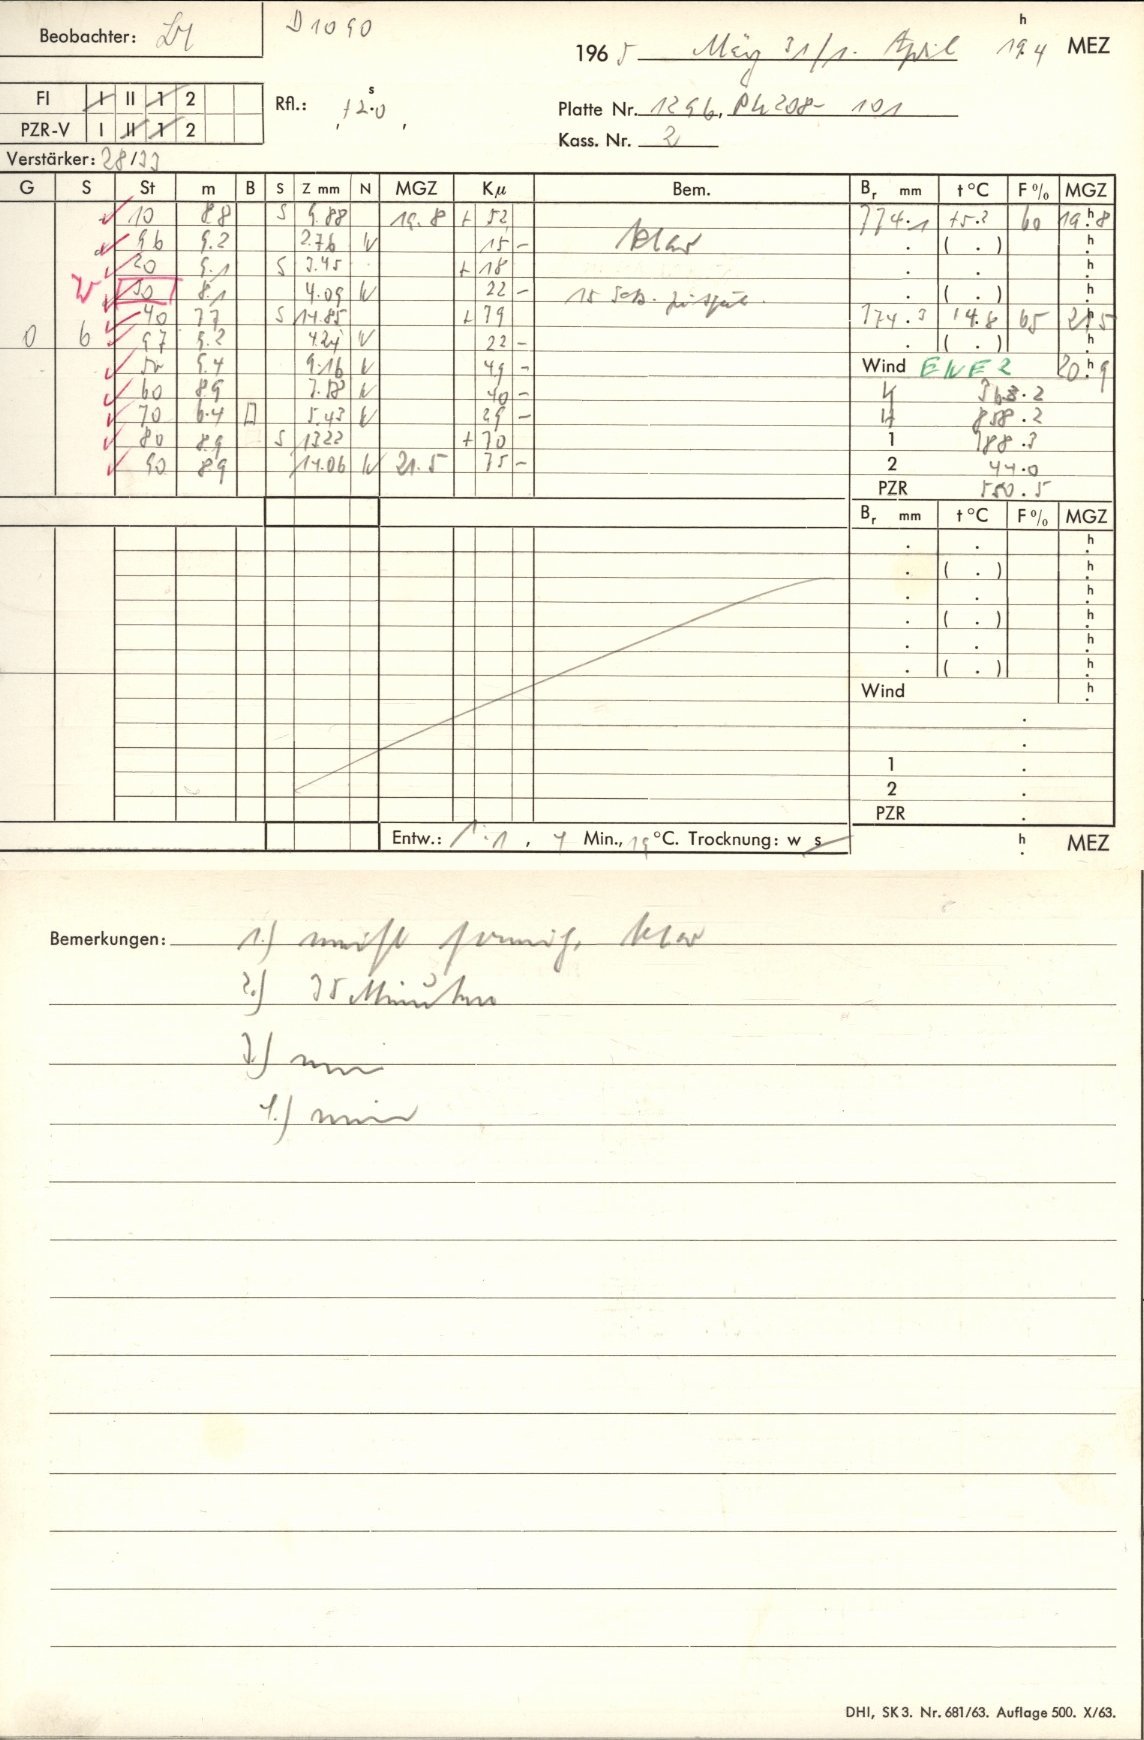 Beobachter:
D 1090
1965 März 31/1. April 19.4 h MEZ
FI I II 1 2
Rfl.: +2.0 s
Platte Nr. 1296, Ph 208- 101
PZR-V I II 1 2
Kass. Nr. 2
Verstärker: 28/33
G S St m B S Z mm N MGZ Kμ Bem. Br mm t °C F % MGZ
10 8.8 S 9.88 19.8 + 52 774.1 +5.2 60 19.h8
96 9.2 2.76 W 15 – klar . ( . ) h
20 9.1 S 3.45 + 18 . . h
W 30 8.1 4.09 W 22 – 15 Sek. . ( . ) h
40 7.7 S 14.85 + 79 774.3 +4.8 65 21.h5
0 6 97 9.2 4.24 W 22 – . ( . ) h
50 9.4 9.16 W 49 – Wind ENE 2 20.h9
60 8.9 7.58 W 40 – 363.2
70 6.4 5.43 W 29 – 858.2
80 8.9 S 13.22 + 70 1 788.3
90 8.9 14.06 W 21.5 75 – 2 44.0
PZR 550.5
Br mm t °C F % MGZ
. . h
. ( . ) h
. . h
. ( . ) h
. . h
. ( . ) h
Wind h
.
.
1 .
2 .
PZR .
Entw.: 1:1, 4 Min., 19 °C. Trocknung: w s h MEZ
Bemerkungen: 1.) meist sonnig, klar
2.) 35 Minuten
3.) nein
4.) nein
DHI, SK 3. Nr. 681/63. Auflage 500. X/63.